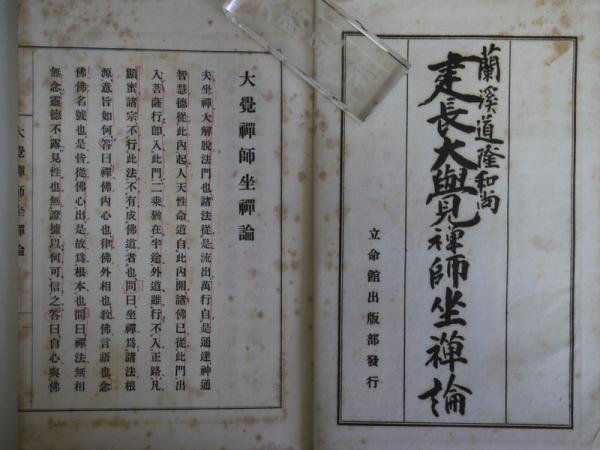 蘭溪道隆和尚
建長大覺禪師坐禪論
立命館出版部發行
大覺禪師坐禪論
夫坐禪大解脫法門也諸法從是流出萬行自是通達神通
智慧德從此內起人天性命道自此內開諸佛已從此門出
入菩薩行卽入此門二乘猶在半途外道雖行不入正路凡
顯蜜諸宗不行此法不有成佛道者也問曰坐禪爲諸法根
源意旨如何答曰禪佛內心也律佛外相也敎佛言語也念
佛佛名號也是皆從佛心出是故爲根本也問曰禪法無相
無念靈德不露見性也無證據以何可信之答曰自心與佛
大覺禪師坐禪論